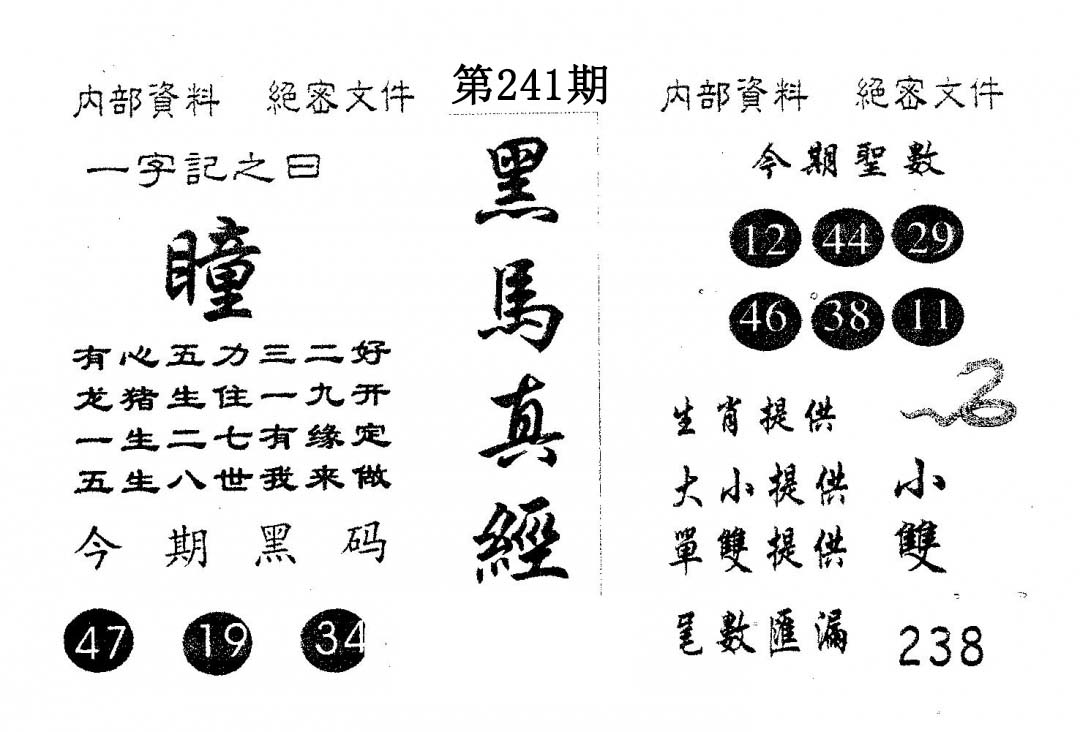 第241期
内部資料 絕密文件
一字記之曰
瞳
有心五力三二好
龙猪生住一九开
一生二七有缘定
五生八世我来做
今期黑码
47 19 34
黑馬真經
内部資料 絕密文件
今期聖數
12 44 29
46 38 11
生肖提供
大小提供 小
單雙提供 雙
尾數匯漏 238